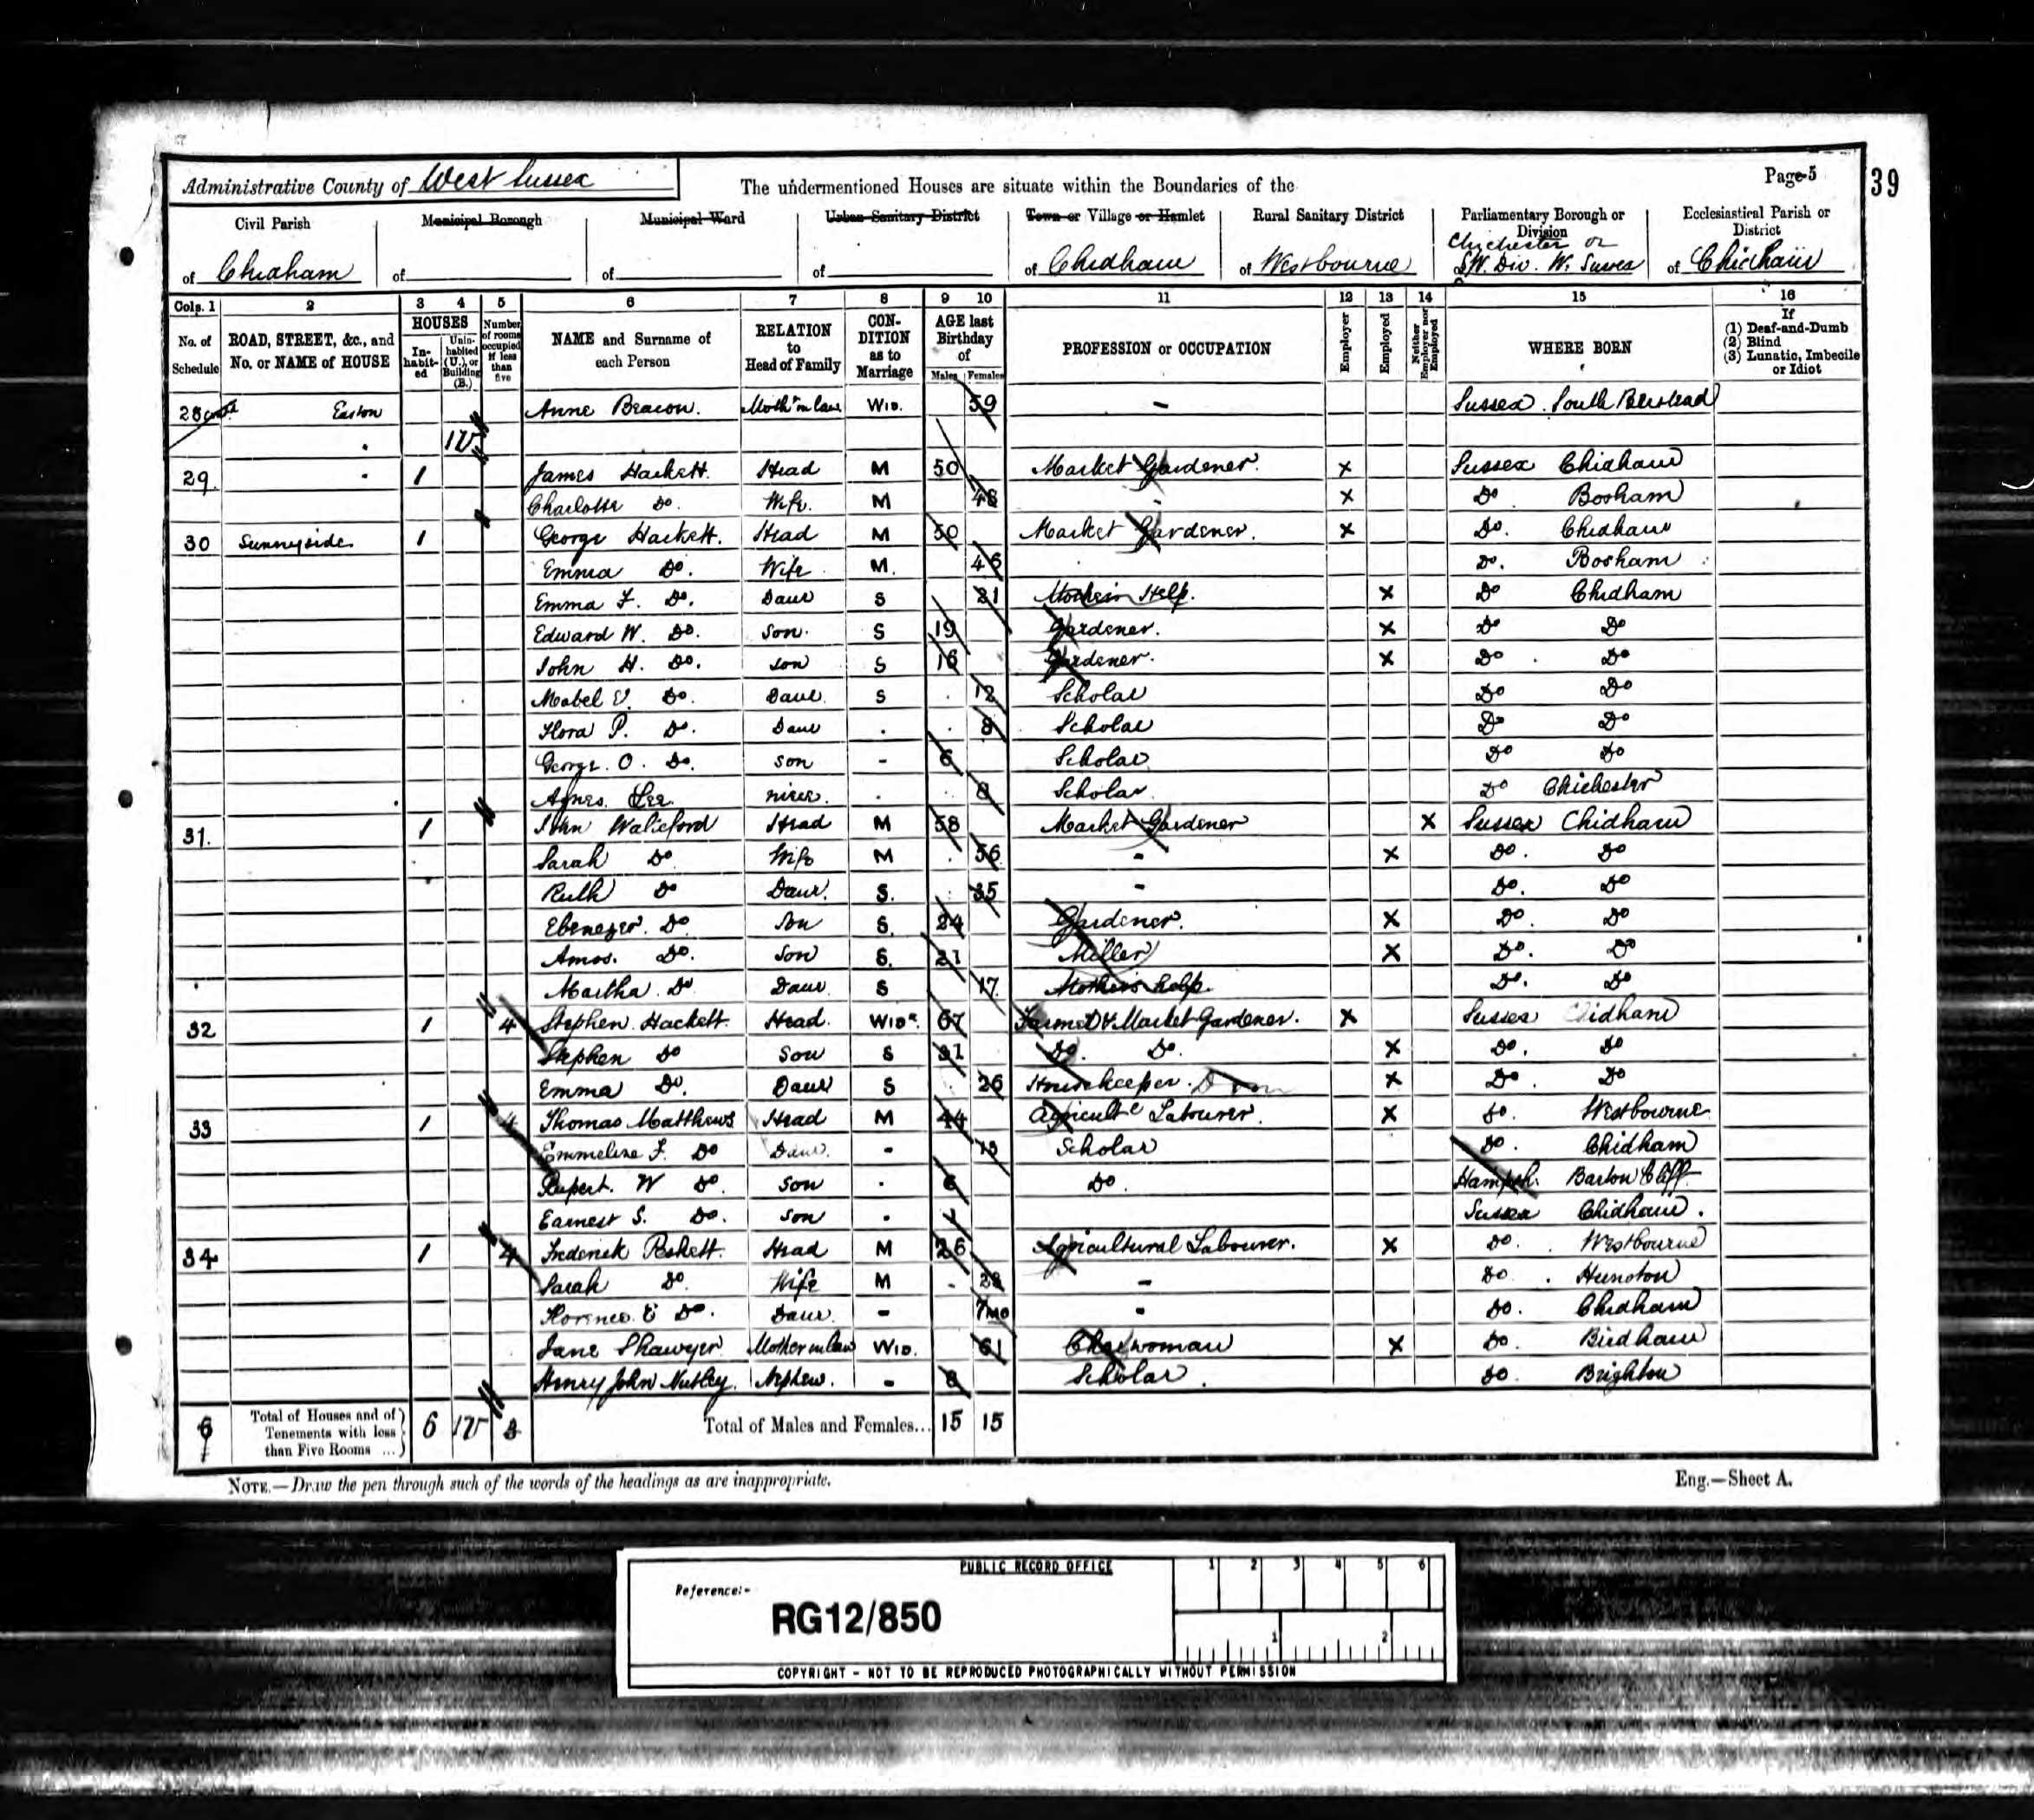 Administrative County of West Sussex The undermentioned Houses are situate within the Boundaries of the Page 5 39
Civil Parish Municipal Borough Municipal Ward Urban Sanitary District Town or Village or Hamlet Rural Sanitary District Parliamentary Borough or Division Ecclesiastical Parish or District
of Chidham of of of of Chidham of Westbourne of Chichester or S.W. Div. W. Sussex of Chidham
Cols. 1 2 3 4 5 6 7 8 9 10 11 12 13 14 15 16
No. of Schedule ROAD, STREET, &c., and No. or NAME of HOUSE HOUSES Inhabited Uninhabited (U.), or Building (B.) Number of rooms occupied if less than five NAME and Surname of each Person RELATION to Head of Family CONDITION as to Marriage AGE last Birthday of Males Females PROFESSION or OCCUPATION Employer Employed Neither Employer nor Employed WHERE BORN If (1) Deaf-and-Dumb (2) Blind (3) Lunatic, Imbecile or Idiot
28 contd Easton Anne Beacon. Mothr in law Wid. 59 - Sussex. South Berstead
1 U
29 1 James Hackett. Head M 50 Market Gardener. x Sussex Chidham
Charlotte Do. Wife. M 48 - x Do. Bosham
30 Sunnyside 1 George Hackett. Head M 50 Market Gardener. x Do. Chidham
Emma Do. Wife M. 46 Do. Bosham
Emma F. Do. Daur S 21 Mothers Help. x Do Chidham
Edward W. Do. Son. S 19 Gardener. x Do Do
John H. Do. Son S 16 Gardener. x Do Do
Mabel Do. Daur S 12 Scholar Do Do
Flora P. Do. Daur 8 Scholar Do Do
George. O. Do. Son - 6 Scholar Do Do
Agnes. Lee niece. 8 Scholar Do Chichester
31. 1 John Head M 58 Market Gardener x Sussex Chidham
Sarah Do Wife M 56 - x Do. Do
Ruth Do Daur. S. 35 - Do. Do
Ebenezer. Do. Son S. 24 Gardener. x Do. Do
Amos. Do. Son S. 21 Miller x Do. Do
Martha. Do Daur S 17 Mothers help. Do. Do
32 1 4 Stephen. Hackett. Head. Widr. 67 Farmer & Market Gardener. x Sussex Chidham
Stephen Do Son S 31 Do. Do. x Do. Do
Emma Do. Daur S 26 Housekeeper. Dom x Do. Do
33 1 4 Thomas Matthews Head M 44 Agricultl Labourer. x Do. Westbourne
Emmeline F. Do Daur. - 13 Scholar Do. Chidham
Rupert. W Do. Son 6 Do. Hampsh. Barton Cliff
Earnest S. Do. Son 1 Sussex Chidham.
34 1 4 Frederick Peskett. Head M 26 Agricultural Labourer. x Do. Westbourne
Sarah Do. Wife M 28 - Do. Hunston
Florence. E Do. Daur. - 7mo - Do. Chidham
Jane Shawyer Mother in law Wid. 61 Charwoman x Do. Birdham
Henry John Nutley. Nephew. - 8 Scholar. Do. Brighton
6 Total of Houses and of Tenements with less than Five Rooms ... 6 1U 3 Total of Males and Females... 15 15
NOTE.—Draw the pen through such of the words of the headings as are inappropriate. Eng.—Sheet A.
PUBLIC RECORD OFFICE 1 2 3 4 5 6
Reference:-
RG12/850
1 2
COPYRIGHT - NOT TO BE REPRODUCED PHOTOGRAPHICALLY WITHOUT PERMISSION